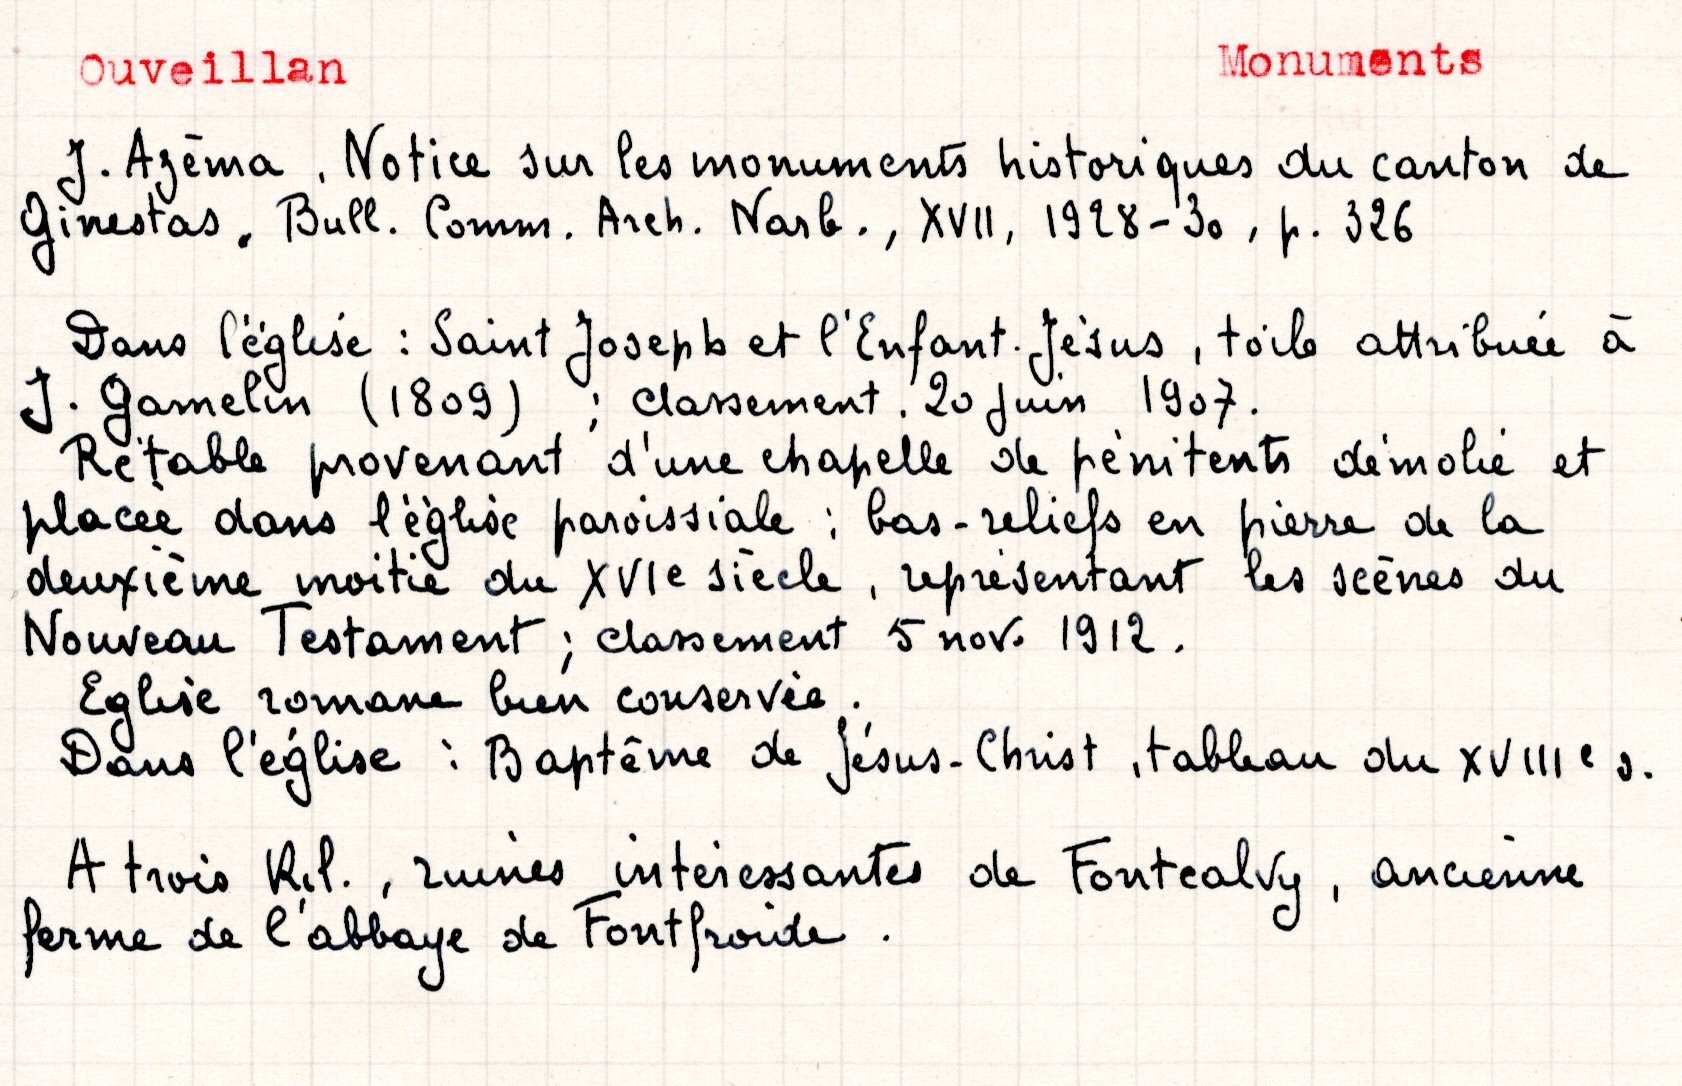 Ouveillan Monuments
J. Azéma, Notice sur les monuments historiques du canton de
Ginestas. Bull. Comm. Arch. Narb., XVII, 1928-30, p. 326
Dans l'église : Saint Joseph et l'Enfant-Jésus, toile attribuée à
J. Gamelin (1809) ; classement. 20 juin 1907.
Rétable provenant d'une chapelle de pénitents démolie et
placée dans l'église paroissiale ; bas-reliefs en pierre de la
deuxième moitié du XVIe siècle, représentant les scènes du
Nouveau Testament ; classement 5 nov. 1912.
Eglise romane bien conservée.
Dans l'église : Baptême de Jésus-Christ, tableau du XVIIIe s.
A trois Kil., ruines intéressantes de Fontcalvy, ancienne
ferme de l'abbaye de Fontfroide.